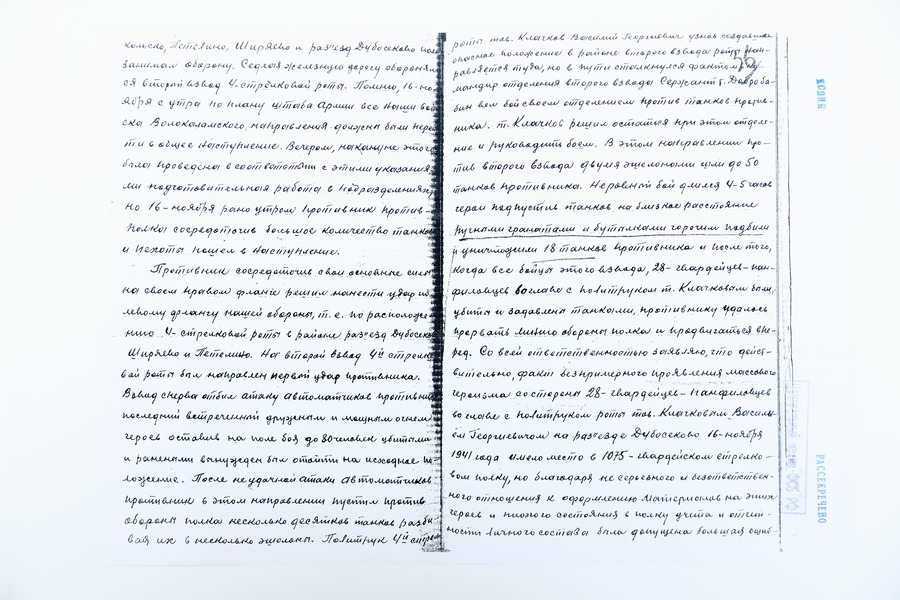 кольско, Петелино, Ширяево и раз'езд Дубосеково
занимал оборону. Седлая железную дорогу оборонял-
ся второй взвод 4-стрелковой роты. Помню, 16-но-
ября с утра по плану штаба Армии все наши
ска Волоколамского направления должны были
ти в общее наступление. Вечером, накануне этого
была проведена в соответствии с этими указания-
ми подготовительная работа в подразделениях,
но 16-ноября рано утром противник против-
полка сосредоточив большое количество танков
и пехоты пошёл в наступление.
Противник сосредоточив свои основные силы
на своем правом фланге решил нанести удар по
левому флангу нашей обороны, т.е. по расположе-
нию 4-стрелковой роты в районе раз'езд Дубосеково
Ширяево и Петелино. На второй взвод 4й стрелко-
вой роты был направлен первый удар противника.
Взвод сперва отбил атаку автоматчиков противника
последний встреченный дружным и мощным огнем
героев оставив на поле боя до 80 человек убитыми
и ранеными вынужден был отойти на исходное
ложение. После неудачной атаки автоматчиков
противник в этом направлении пустил против
обороны полка несколько десятков танков разби-
вая их в несколько эшелоны. Политрук 4й
роты тов. Клачков Василий Георгиевич узнав создавшее
опасное положение в районе второго взвода роты
равляется туда, но в пути столкнулся фактом
мандир отделения второго взвода Сержант т. Добробა-
бин вел бой своем отделением против танков против-
ника. т. Клачков решил остаться при этом отделе-
ние и руководить боем. В этом направлении про-
тив второго взвода двумя эшелонами шли до 50
танков противника. Неровный бой длился 4-5 часов
герои подпустив танков на близкое расстояние
ручными гранатами и бутылками горючим подбили
и уничтожили 18 танков противника и после того,
когда все бойцы этого взвода, 28-гвардейцев-пан-
филовцев во главе с политруком т. Клачковым были,
убиты и задавлены танками, противнику удалось
прорвать линию обороны полка и продвигаться впе-
ред. Со всей ответственностью заявляю, что дейст-
вительно, факт беспримерного проявления массового
героизма со стороны 28-гвардейцев-Панфиловцев
во главе с политруком роты тов. Клачковым Василь-
ем Георгиевичом на раз'езде Дубосеково 16-ноября
1941 года имело место в 1075-гвардейском стрелко-
вом полку, но благодаря не серьезного и безответствен-
ного отношения к оформлению материалов на этих
героев и плохого состояния в полку учета и отчет-
ности личного состава была допущена большая ошиб-
КОПИЯ
РАССЕКРЕЧЕНО